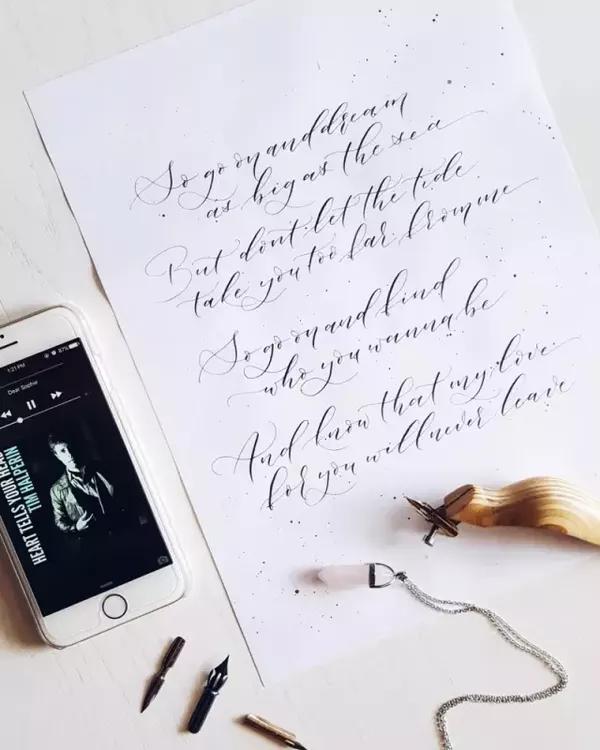 So go on and dream
as big as the sea
But dont let the tide
take you too far from me
So go on and find
who you wanna be
And know that my love
for you will never leave
1:21 PM
87%
Dear Sophie
HEART TELLS YOUR HEAD
TIM HALPERIN